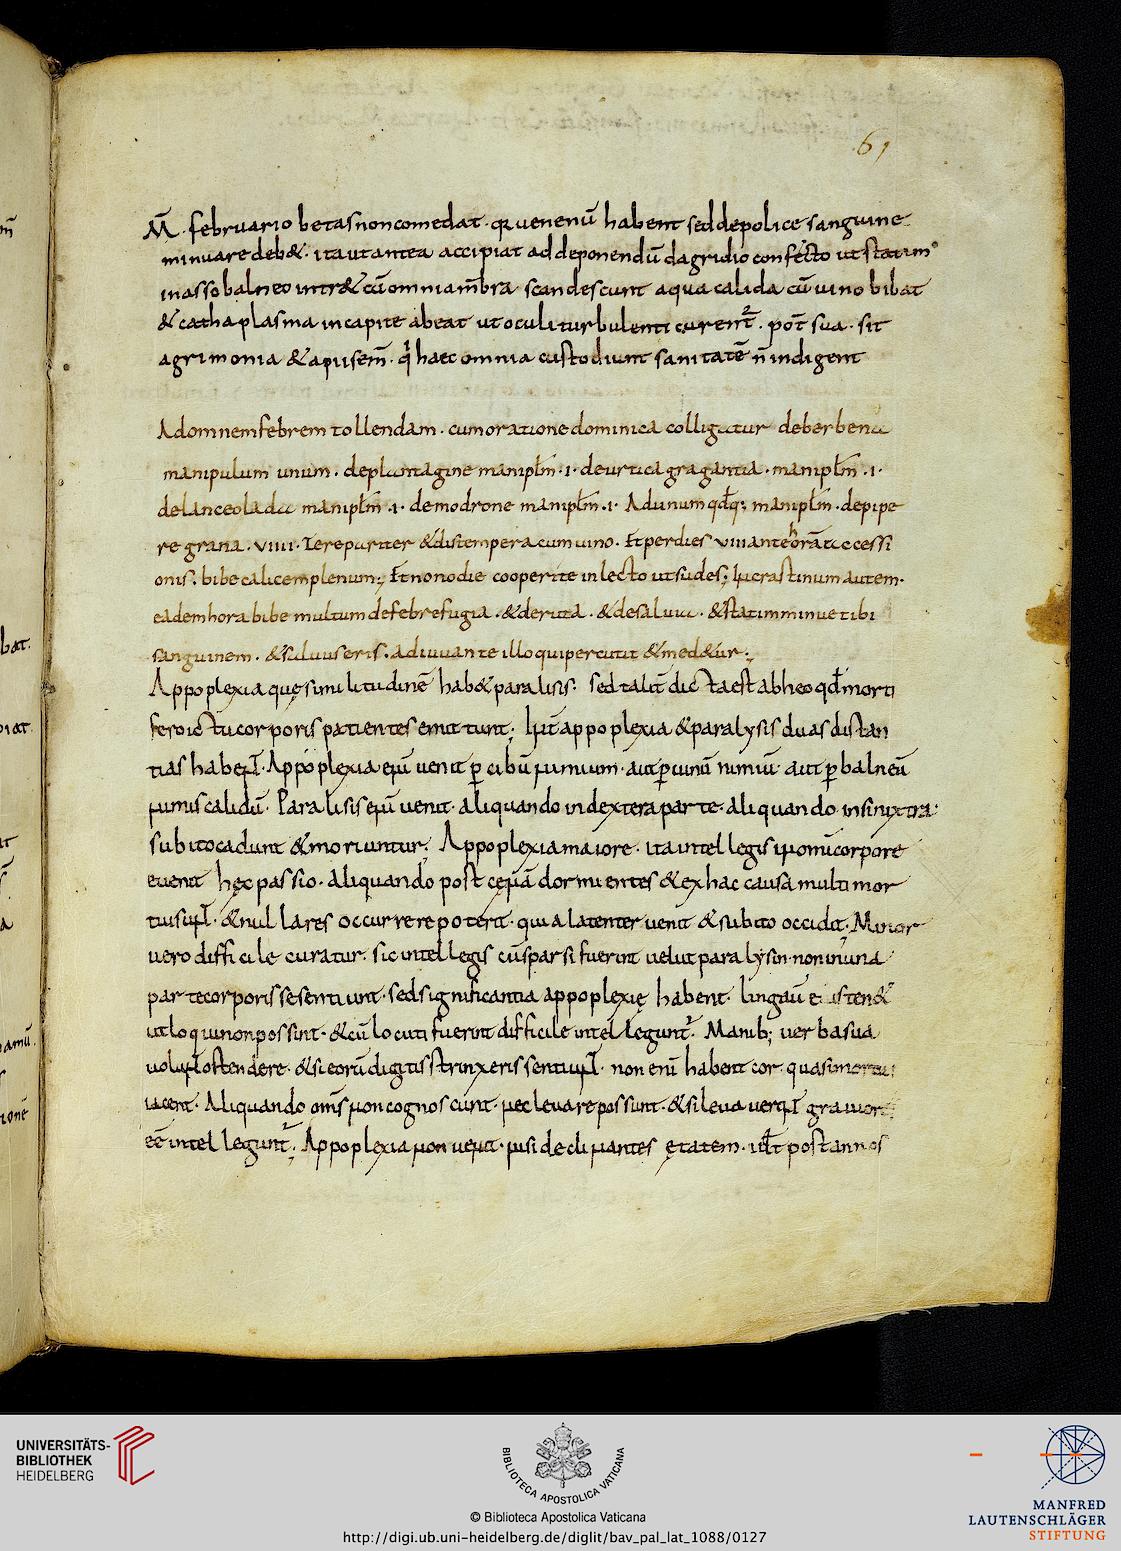 61
M̄. februario betas non comedat. qr uenenū habent sed de police sanguine
minuare deb&. ita ut antea accipiat ad deponendū dagridio confecto ut statim
in asso balneo intr& cū omnia m̄bra scandescunt aqua calida cū uino bibat
& cathaplasma in capite abeat ut oculi turbulenti curent̄. pot̄ sua. sit
agrimonia & apii sem̄. qi haec omnia custodiunt sanitatē n̄ indigent
Ad omnem febrem tollendam. cum oratione dominica colligatur de berbena
manipulum unum. de plantagine manipl̄m .i. de urtica gragantia. manipl̄m .i.
de lanceolada manipl̄m .i. de modrone manipl̄m .i. Ad unum qd̄q; manipl̄m. de pipe
re grana. viiii. Tere pariter & distempera cum uino. Et per dies viiii ante horā accessi
onis. bibe calicem plenum; Et nono die cooperite in lecto ut sudes; In crastinum autem.
eadem hora bibe multum de febrefugia. & de ruta. & de saluia. & statim minue tibi
sanguinem. & saluus eris. adiuuante illo qui percutit & med&ur;
Appoplexia quę similitudinē hab& paralisis. sed talit̄ dicta est ab heo qd̄ morti
fero ictu corporis patientes emittunt; Int̄ appoplexia & paralysis duas distan
tias habent. Appoplexia enī uenit p̄ cibū nimium. aut p̄ uinū nimiū. aut p̄ balneū
nimis calidū. Paralisis enī uenit. aliquando in dextera parte. aliquando in sinixtra.
subito cadunt & moriuntur; Appoplexia maiore. ita intellegis in omni corpore
euenit hęc passio. aliquando post cęnā dormientes & ex hac causa multi mor
tui sunt. & nulla res occurrere poterit. quia latenter uenit & subito occidit; Minor
uero difficile curatur. sic intellegis cū sparsi fuerint uelut paralysin. non in una
parte corporis se sentiunt. sed significantia appoplexię habent. lingaū
ut loqui non possint. & cū locuti fuerint difficile intellegunt̄. Manib; uerba sua
uolunt ostendere. & si eorū digitis strinxeris sentiunt. non enī habent cor quasi mortui
iacent. Aliquando om̄s non cognoscunt. nec leuare possunt. & si leua uerint grauiore
eē intellegunt̄; Appoplexia non uenit. nisi declinantes ętatem. id est post annos
UNIVERSITÄTS-
BIBLIOTHEK
HEIDELBERG
BIBLIOTECA APOSTOLICA VATICANA
© Biblioteca Apostolica Vaticana
http://digi.ub.uni-heidelberg.de/diglit/bav_pal_lat_1088/0127
MANFRED
LAUTENSCHLÄGER
STIFTUNG